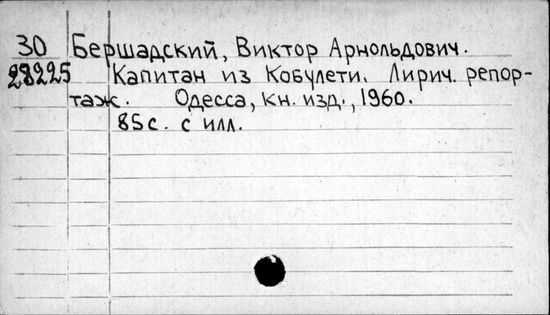 30 Бершадский, Виктор Арнольдович.
28225 Капитан из Кобулети. Лирич. репор-
таж. Одесса, кн. изд., 1960.
85с. с илл.